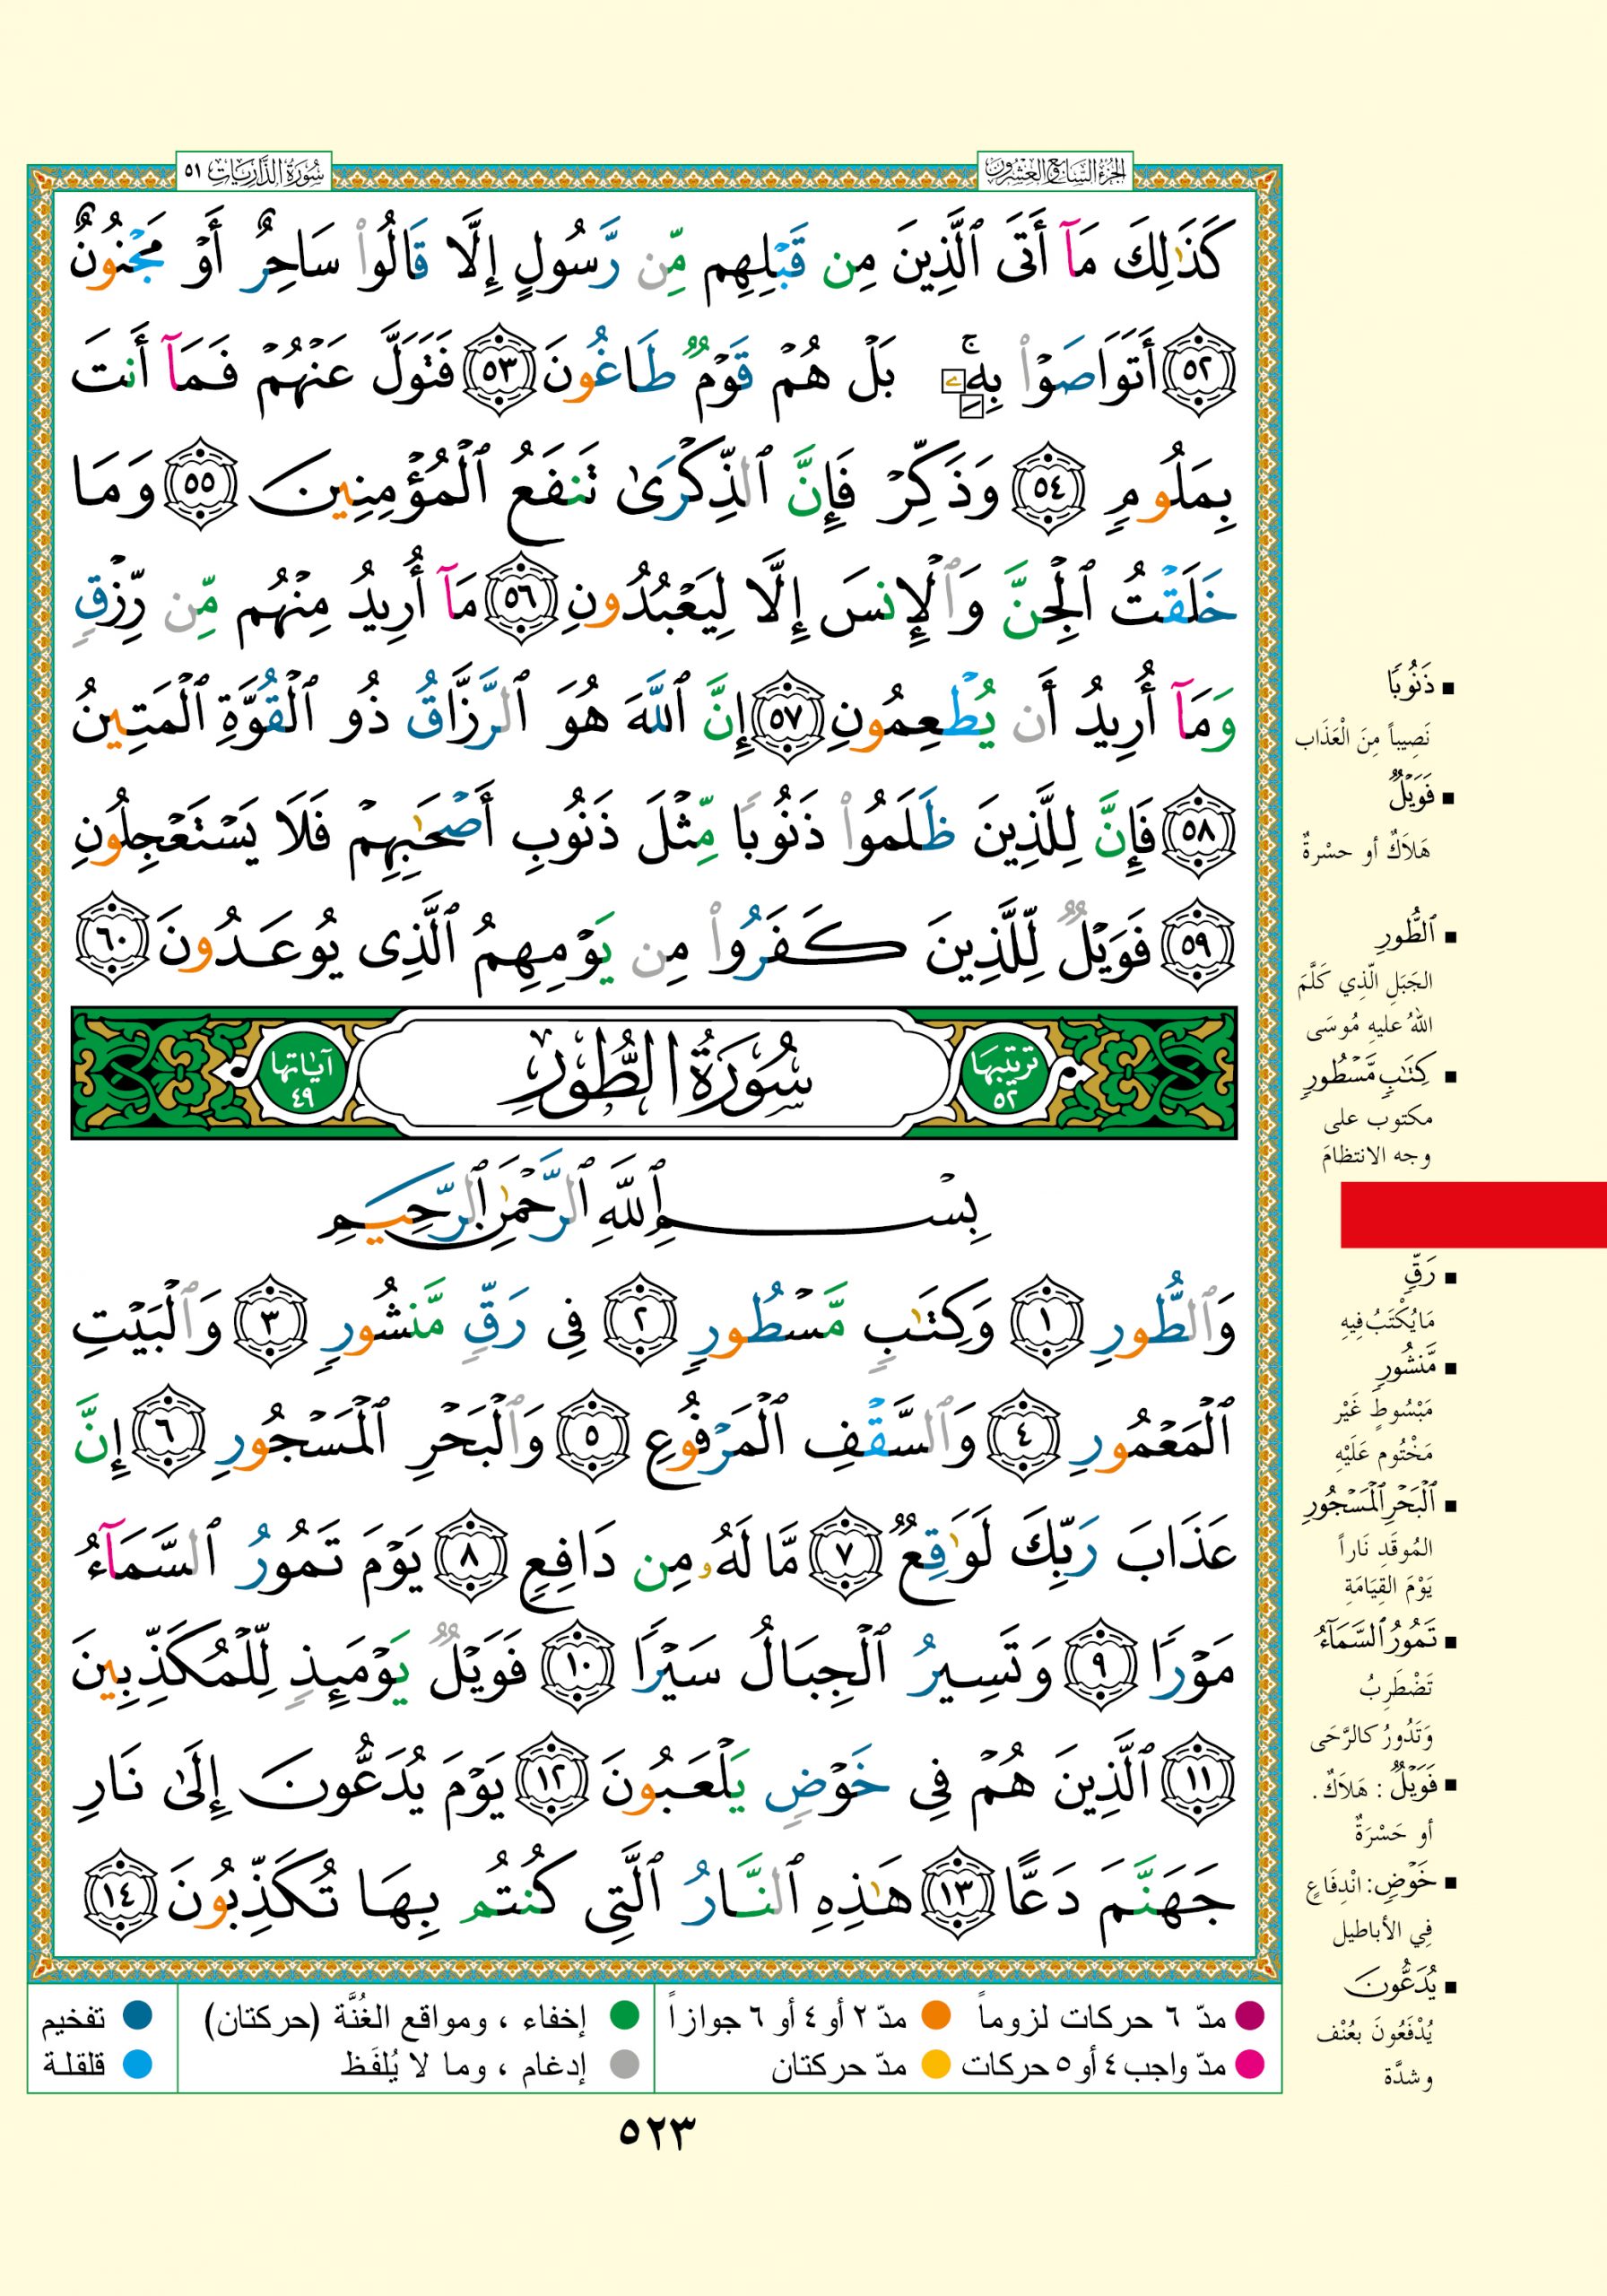 الجزء السابع والعشرون
سُورَةُ الذَّارِيَاتِ ٥١
كَذَٰلِكَ مَآ أَتَى ٱلَّذِينَ مِن قَبْلِهِم مِّن رَّسُولٍ إِلَّا قَالُوا۟ سَاحِرٌ أَوْ مَجْنُونٌ
٥٢ أَتَوَاصَوْا۟ بِهِۦۚ بَلْ هُمْ قَوْمٌ طَاغُونَ ٥٣ فَتَوَلَّ عَنْهُمْ فَمَآ أَنتَ
بِمَلُومٍ ٥٤ وَذَكِّرْ فَإِنَّ ٱلذِّكْرَىٰ تَنفَعُ ٱلْمُؤْمِنِينَ ٥٥ وَمَا
خَلَقْتُ ٱلْجِنَّ وَٱلْإِنسَ إِلَّا لِيَعْبُدُونِ ٥٦ مَآ أُرِيدُ مِنْهُم مِّن رِّزْقٍ
وَمَآ أُرِيدُ أَن يُطْعِمُونِ ٥٧ إِنَّ ٱللَّهَ هُوَ ٱلرَّزَّاقُ ذُو ٱلْقُوَّةِ ٱلْمَتِينُ
٥٨ فَإِنَّ لِلَّذِينَ ظَلَمُوا۟ ذَنُوبًا مِّثْلَ ذَنُوبِ أَصْحَٰبِهِمْ فَلَا يَسْتَعْجِلُونِ
٥٩ فَوَيْلٌ لِّلَّذِينَ كَفَرُوا۟ مِن يَوْمِهِمُ ٱلَّذِى يُوعَدُونَ ٦٠
ترتيبها ٥٢
سُورَةُ الطُّورِ
آياتها ٤٩
بِسْمِ ٱللَّهِ ٱلرَّحْمَٰنِ ٱلرَّحِيمِ
وَٱلطُّورِ ١ وَكِتَٰبٍ مَّسْطُورٍ ٢ فِى رَقٍّ مَّنشُورٍ ٣ وَٱلْبَيْتِ
ٱلْمَعْمُورِ ٤ وَٱلسَّقْفِ ٱلْمَرْفُوعِ ٥ وَٱلْبَحْرِ ٱلْمَسْجُورِ ٦ إِنَّ
عَذَابَ رَبِّكَ لَوَٰقِعٌ ٧ مَّا لَهُۥ مِن دَافِعٍ ٨ يَوْمَ تَمُورُ ٱلسَّمَآءُ
مَوْرًا ٩ وَتَسِيرُ ٱلْجِبَالُ سَيْرًا ١٠ فَوَيْلٌ يَوْمَئِذٍ لِّلْمُكَذِّبِينَ
١١ ٱلَّذِينَ هُمْ فِى خَوْضٍ يَلْعَبُونَ ١٢ يَوْمَ يُدَعُّونَ إِلَىٰ نَارِ
جَهَنَّمَ دَعًّا ١٣ هَٰذِهِ ٱلنَّارُ ٱلَّتِى كُنتُم بِهَا تُكَذِّبُونَ ١٤
■ ذَنُوبًا
نَصِيباً مِنَ الْعَذَاب
■ فَوَيْلٌ
هَلاَكٌ أو حسْرةٌ
■ ٱلطُّورِ
الجَبَلِ الّذِي كَلَّمَ
اللهُ عليهِ مُوسَى
■ كِتَٰبٍ مَّسْطُورٍ
مكتوب على
وجه الانتظامَ
■ رَقٍّ
مَا يُكْتَبُ فِيهِ
■ مَّنشُورٍ
مَبْسُوطٍ غَيْر
مَخْتُوم عَلَيْهِ
■ ٱلْبَحْرِ ٱلْمَسْجُورِ
المُوقَدِ نَاراً
يَوْمَ القِيَامَةِ
■ تَمُورُ ٱلسَّمَآءُ
تَضْطَرِبُ
وَتَدُورُ كالرَّحَى
■ فَوَيْلٌ : هَلاَكٌ .
أو حَسْرَةٌ
■ خَوْضٍ : انْدِفَاعٍ
فِي الأباطيل
■ يُدَعُّونَ
يُدْفَعُونَ بعُنْف
وشدَّة
مدّ ٦ حركات لزوماً مدّ ٢ أو ٤ أو ٦ جوازاً إخفاء ، ومواقع الغُنَّة (حركتان) تفخيم
مدّ واجب ٤ أو ٥ حركات مدّ حركتان إدغام ، وما لا يُلفَظ قلقلة
٥٢٣